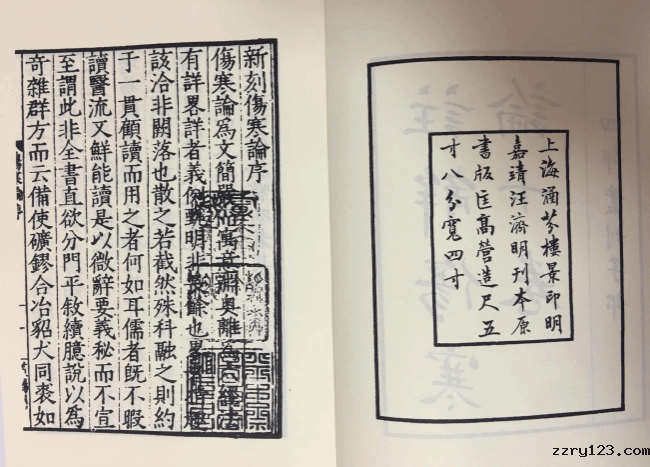 上海涵芬樓景印明
嘉靖汪濟明刊本原
書版匡高營造尺五
寸八分寬四寸
新刻傷寒論序
傷寒論為文簡嚴而寓意淵奧離為
有詳畧詳者義例甄明非長餘也畧者指趣
該洽非闕落也散之若截然殊科融之則約
于一貫顧讀而用之者何如耳儒者旣不暇
讀醫流又鮮能讀是以微辭要義秘而不宣
至謂此非全書直欲分門平敘續臆說以為
奇雜群方而云備使礦鏐合冶貂犬同裘如
zzry123.com